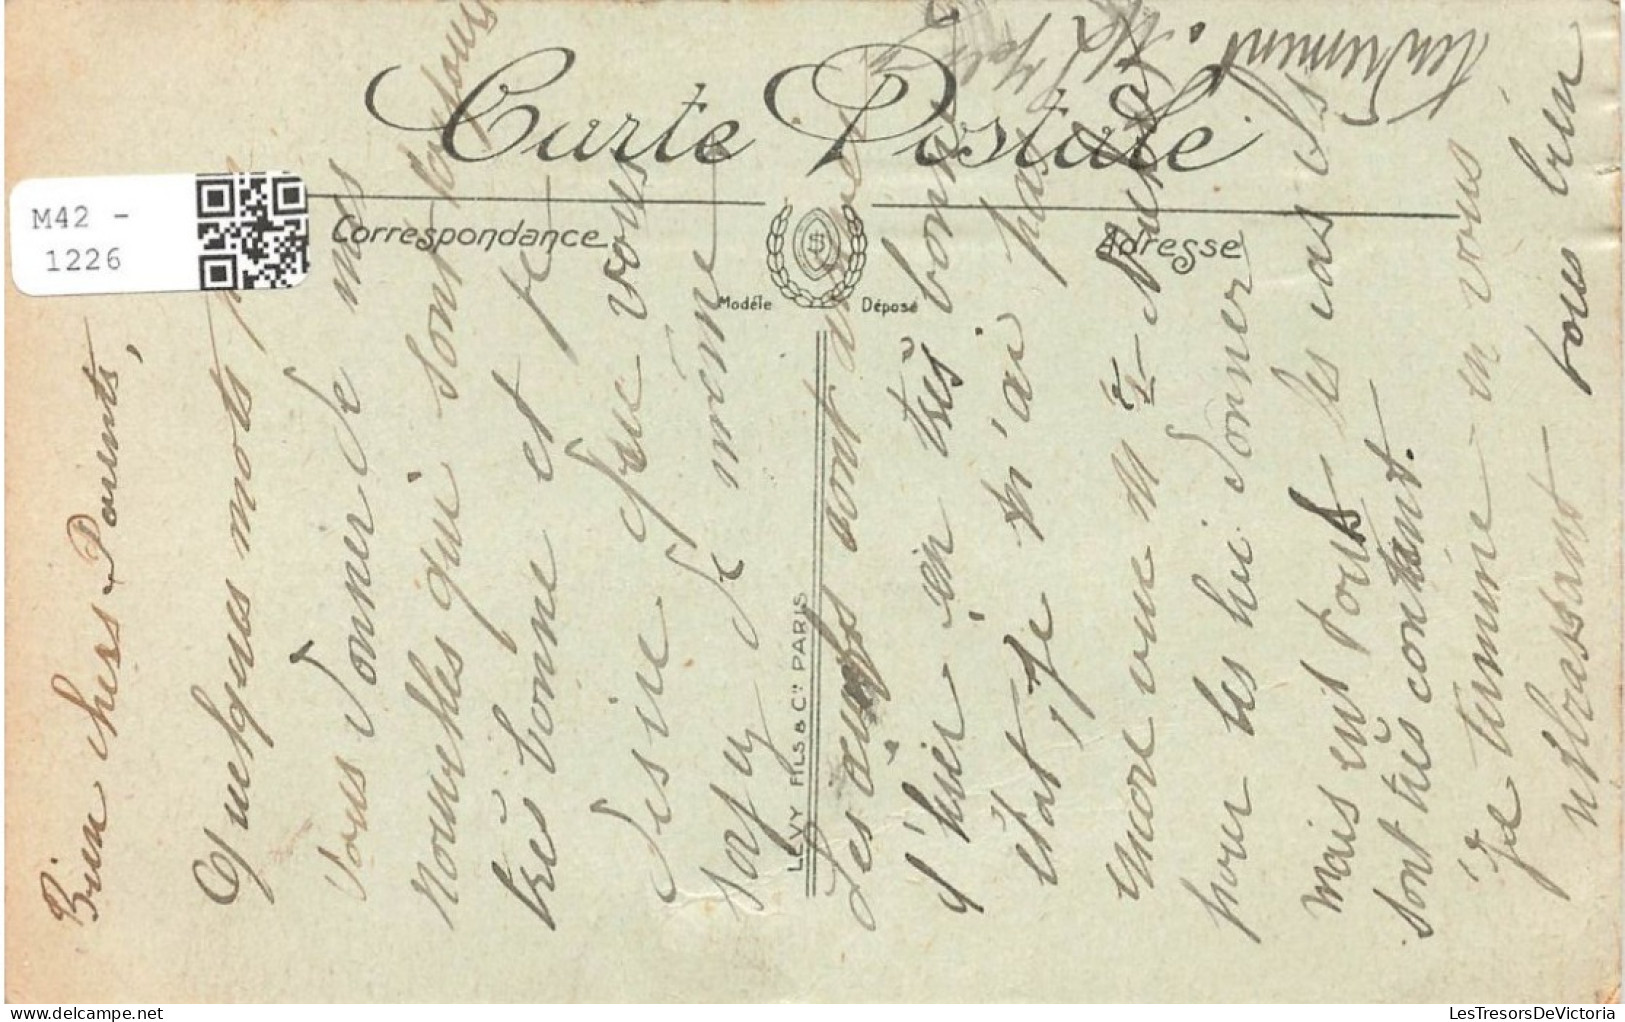 Carte Postale
Correspondance
Adresse
Modèle Déposé
LEVY FILS & Cie PARIS
M42 -
1226
Bien chers Parents,
Quelques mots
vous donner de mes
nouvelles qui sont toujours
très bonne et je
désire que vous
soyez de même
Les œufs sont
d'hier en très bonne
état, je n'ai pas
encore vue Mme
pour les lui donner
mais en tous les cas ils
sont très contant.
Je termine en vous
embrassant tous bien
tendrement.
LesTresorsDeVictoria
delcampe.net